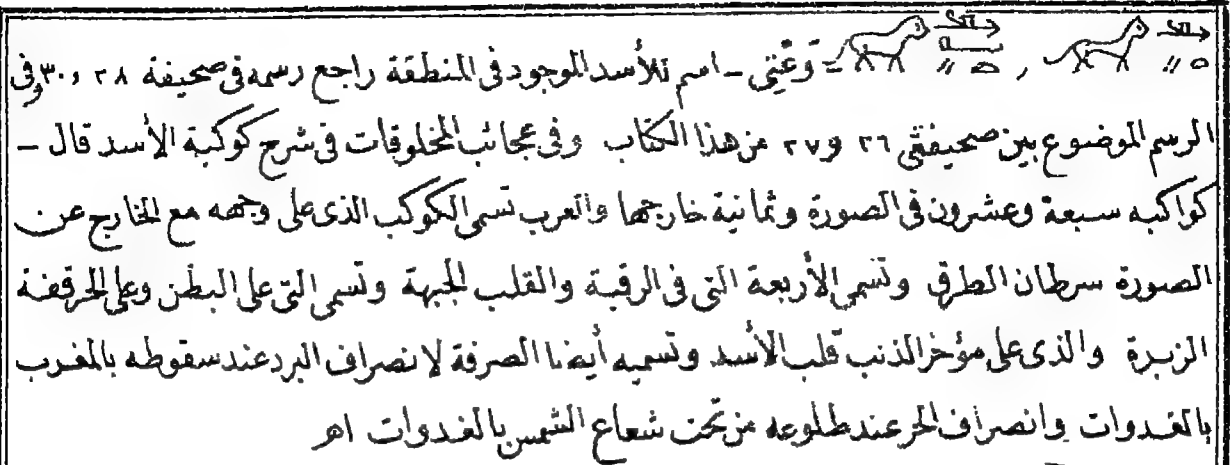 = وَعْتِي - اسم للأسد الموجود فى المنطقة راجع رسمه فى صحيفة ٢٨ و ٣٠ وفى
الرسم الموضوع بين صحيفتى ٢٦ و ٢٧ من هذا الكتاب وفى عجائب المخلوقات فى شرح كوكبة الأسد قال -
كواكبه سبعة وعشرون فى الصورة وثمانية خارجها والعرب تسمى الكوكب الذى على وجهه مع الخارج عن
الصورة سرطان الطرق وتسمى الأربعة التى فى الرقبة والقلب الجبهة وتسمى التى على البطن وعلى الحرقفة
الزبرة والذى على مؤخر الذنب قلب الأسد وتسميه أيضا الصرفة لانصراف البرد عند سقوطه بالمغرب
بالغدوات وانصراف الحر عند طلوعه من تحت شعاع الشمس بالغدوات اهـ